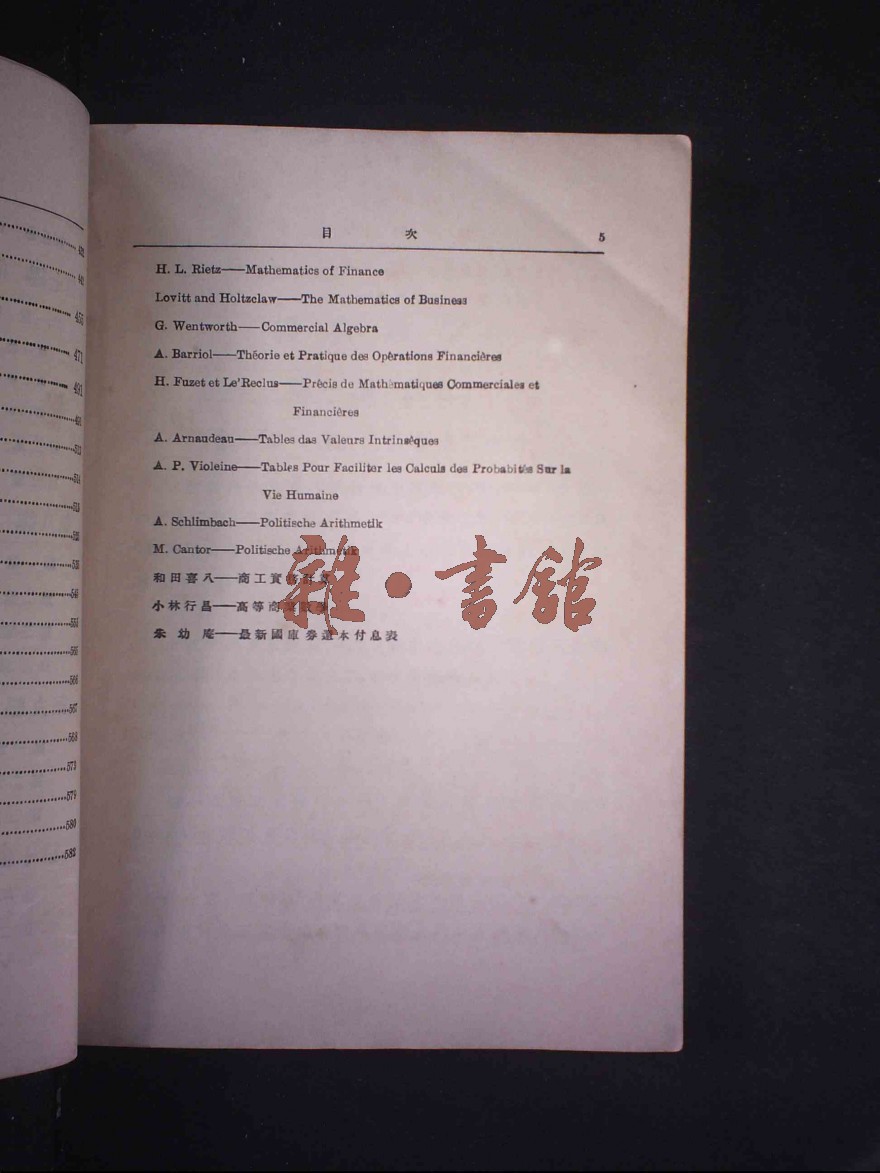 432
443
456
471
481
490
512
514
515
525
535
549
555
565
566
567
568
573
579
580
582
目 次 5
H. L. Rietz——Mathematics of Finance
Lovitt and Holtzclaw——The Mathematics of Business
G. Wentworth——Commercial Algebra
A. Barriol——Théorie et Pratique des Opérations Financières
H. Fuzet et Le'Reclus——Précis de Mathématiques Commerciales et
Financières
A. Arnaudeau——Tables das Valeurs Intrinsêques
A. P. Violeine——Tables Pour Faciliter les Calculs des Probabités Sur la
Vie Humaine
A. Schlimbach——Politische Arithmetik
M. Cantor——Politische Arithmetik
和田喜八——商工實
小林行昌——高等商業
朱幼庵——最新國庫券還本付息表
雜·書館